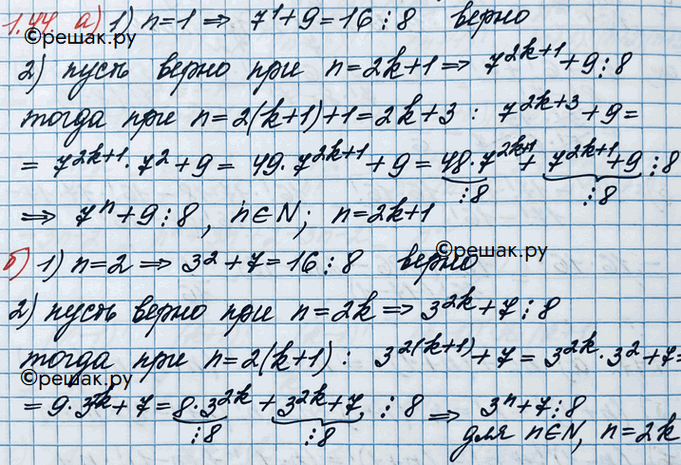 1.44 а) 1) n=1 ⇒ 7¹+9=16⋮8 верно
©решак.ру
2) пусть верно при n=2k+1 ⇒ 7²ᵏ⁺¹+9⋮8
тогда при n=2(k+1)+1=2k+3 : 7²ᵏ⁺³+9=
= 7²ᵏ⁺¹·7²+9 = 49·7²ᵏ⁺¹+9 = 48·7²ᵏ⁺¹+ 7²ᵏ⁺¹+9⋮8
⋮8 ⋮8
⇒ 7ⁿ+9⋮8, n∈N; n=2k+1
©решак.ру
б) 1) n=2 ⇒ 3²+7=16⋮8 верно
2) пусть верно при n=2k ⇒ 3²ᵏ+7⋮8
тогда при n=2(k+1) : 3²⁽ᵏ⁺¹⁾+7 = 3²ᵏ·3²+7=
©решак.ру
= 9·3²ᵏ+7 = 8·3²ᵏ + 3²ᵏ+7, ⋮8 ⇒ 3ⁿ+7⋮8
⋮8 ⋮8 для n∈N, n=2k